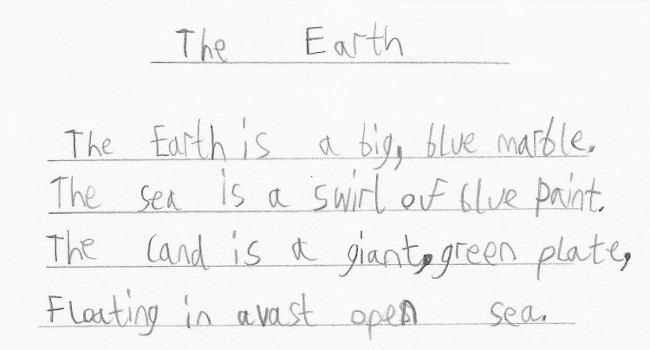 The Earth
The Earth is a big, blue marble.
The sea is a swirl of blue paint.
The land is a giant, green plate,
Floating in a vast open sea.